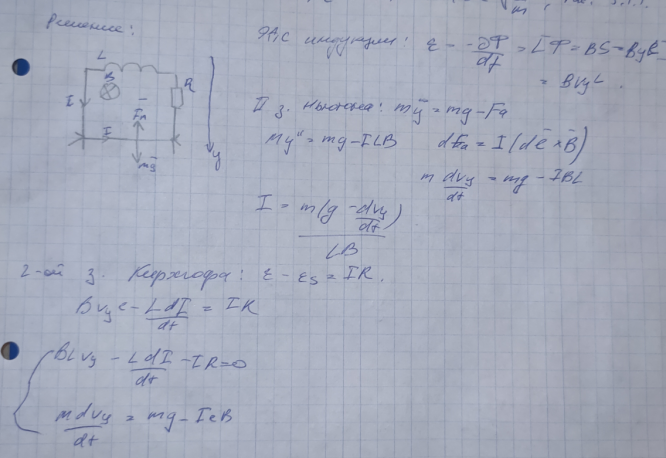 Решение:
ЭДС индукции: ε = -dФ/dt = [Ф = BS = Byℓ] =
= BVyL.
L
B
I
R
I
Fa
mg
y
II з. Ньютона: mÿ = mg - Fa
my'' = mg - ILB dFa = I(dℓ × B)
m dVy/dt = mg - IBL
I = m(g - dVy/dt) / LB
2-ой з. Кирхгофа: ε - εs = IR.
BVyℓ - LdI/dt = IR
BLVy - LdI/dt - IR=0
mdVy/dt = mg - IℓB